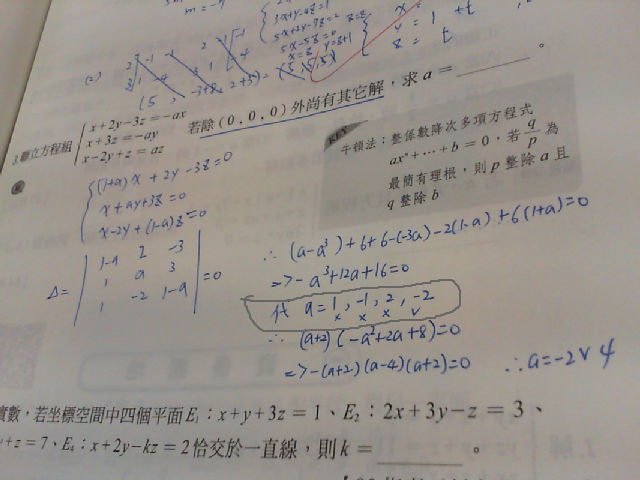 m = -7
3x+4y-6z=1
5x+2y-9z=2
5x-5z=0
x=z y=z+1
x =
y = 1 +t
z = t
(2)
(5, -3+8, 2+3) = (5, 5, 5)
3 聯立方程組 x+2y-3z=-ax
x+3z=-ay
x-2y+z=az
若除(0,0,0)外尚有其它解，求a=________。
(1+a)x+2y-3z=0
x+ay+3z=0
x-2y+(1-a)z=0
KEY
牛頓法：整係數降次多項方程式
axⁿ+⋯+b=0，若 q/p 為
最簡有理根，則p整除a且
q整除b
Δ= | 1+a 2 -3 |
| 1 a 3 | =0
| 1 -2 1-a |
∴ (a-a³)+6+6-(-3a)-2(1-a)+6(1+a)=0
=> -a³+12a+16=0
代 a=1, -1, 2, -2
x x x v
∴ (a+2)(-a²+2a+8)=0
=> -(a+2)(a-4)(a+2)=0 ∴a=-2∨4
實數，若坐標空間中四個平面E₁：x+y+3z=1、E₂：2x+3y-z=3、
y+z=7、E₄：x+2y-kz=2恰交於一直線，則k=________。